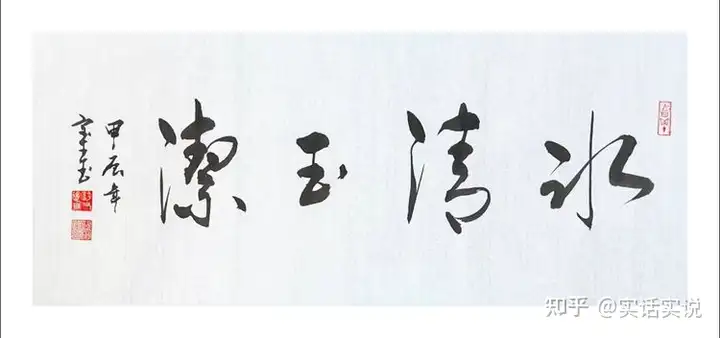 冰清玉潔
甲辰年
知乎 @实话实说